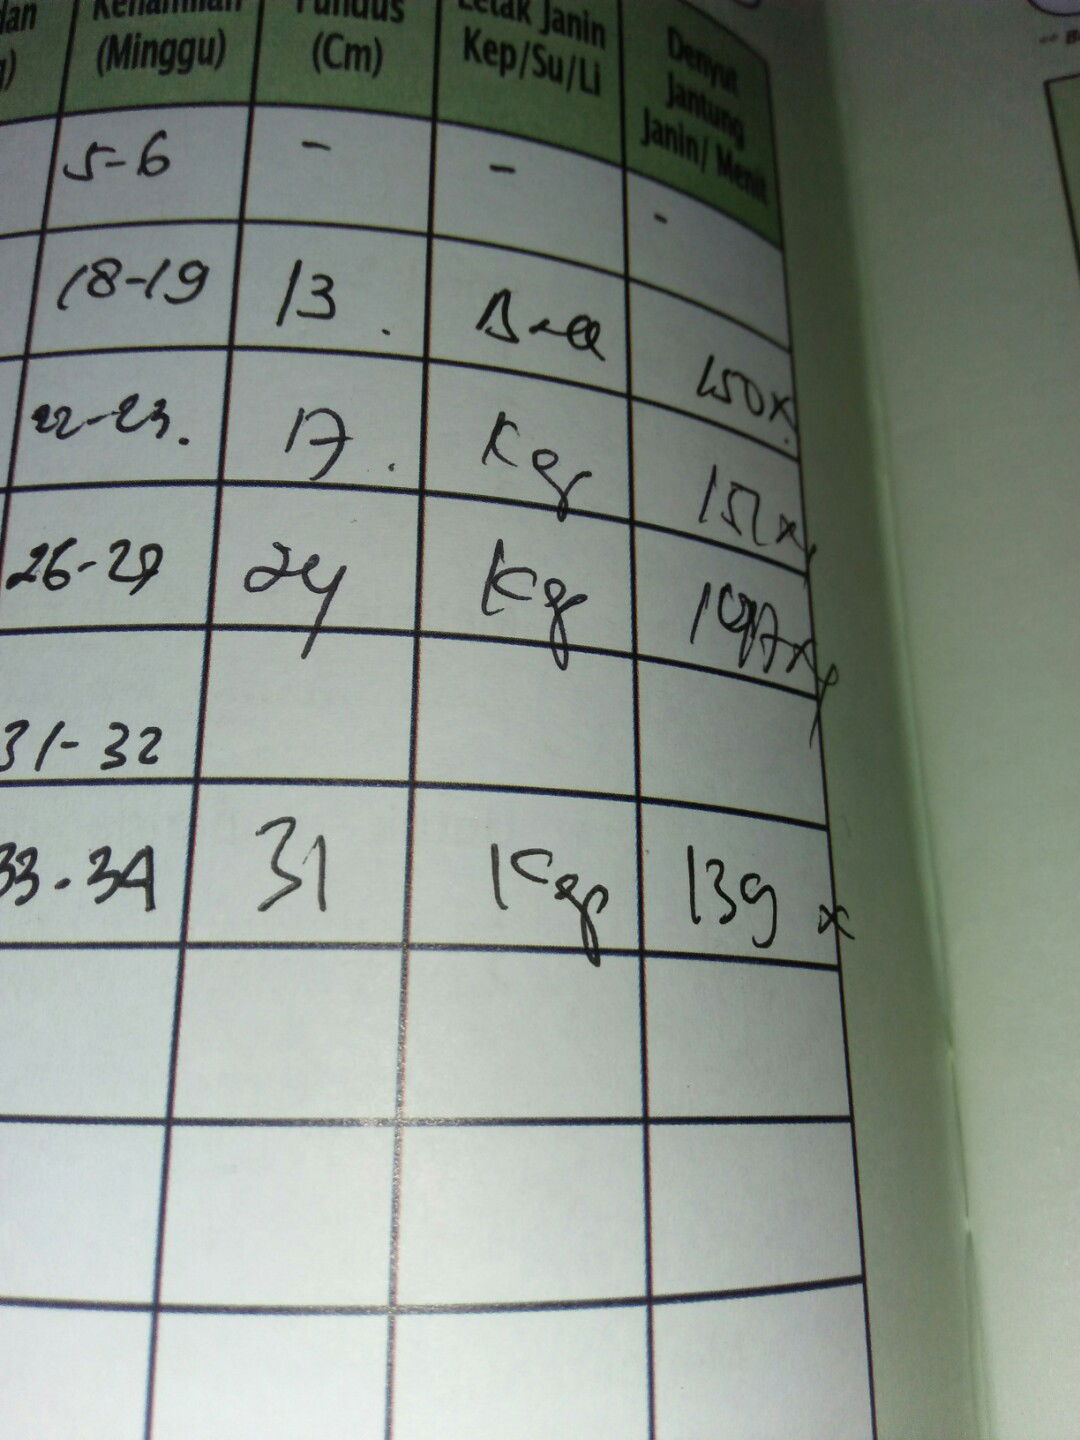 Kehamilan (Minggu)
Fundus (Cm)
Letak Janin Kep/Su/Li
Denyut Jantung Janin/ Menit
5-6 - - -
18-19 13. 150x
22-23. 17. Kep 152x
26-27 24 Kep
31-32
33-34 31 Kep 139x